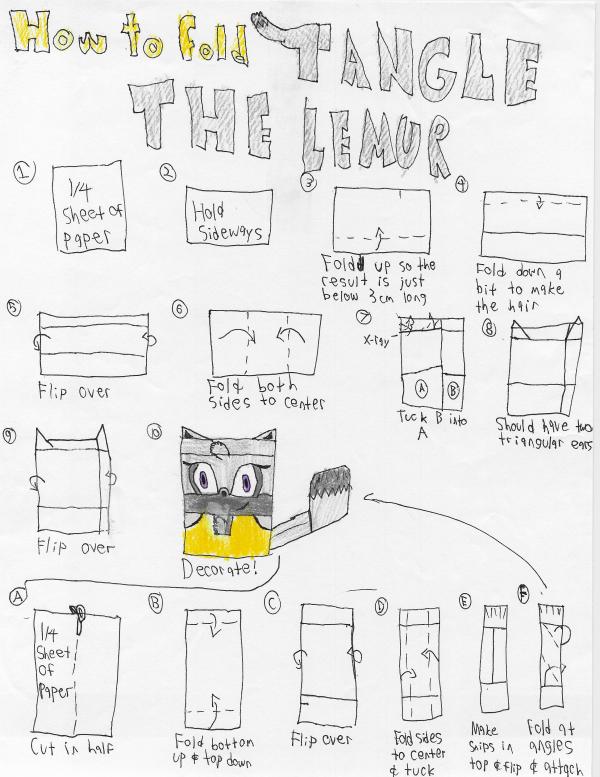 How to Fold
TANGLE
THE LEMUR
1
1/4
Sheet of
paper
2
Hold
Sideways
3
Fold up so the
result is just
below 3cm long
4
Fold down a
bit to make
the hair
5
Flip over
6
Fold both
sides to center
7
X-ray
A
B
Tuck B into
A
8
Should have two
triangular ears
9
Flip over
10
Decorate!
A
1/4
Sheet
of
Paper
Cut in half
B
Fold bottom
up & top down
C
Flip over
D
Fold sides
to center
& tuck
E
Make
snips in
top & flip
F
Fold at
angles
& attach